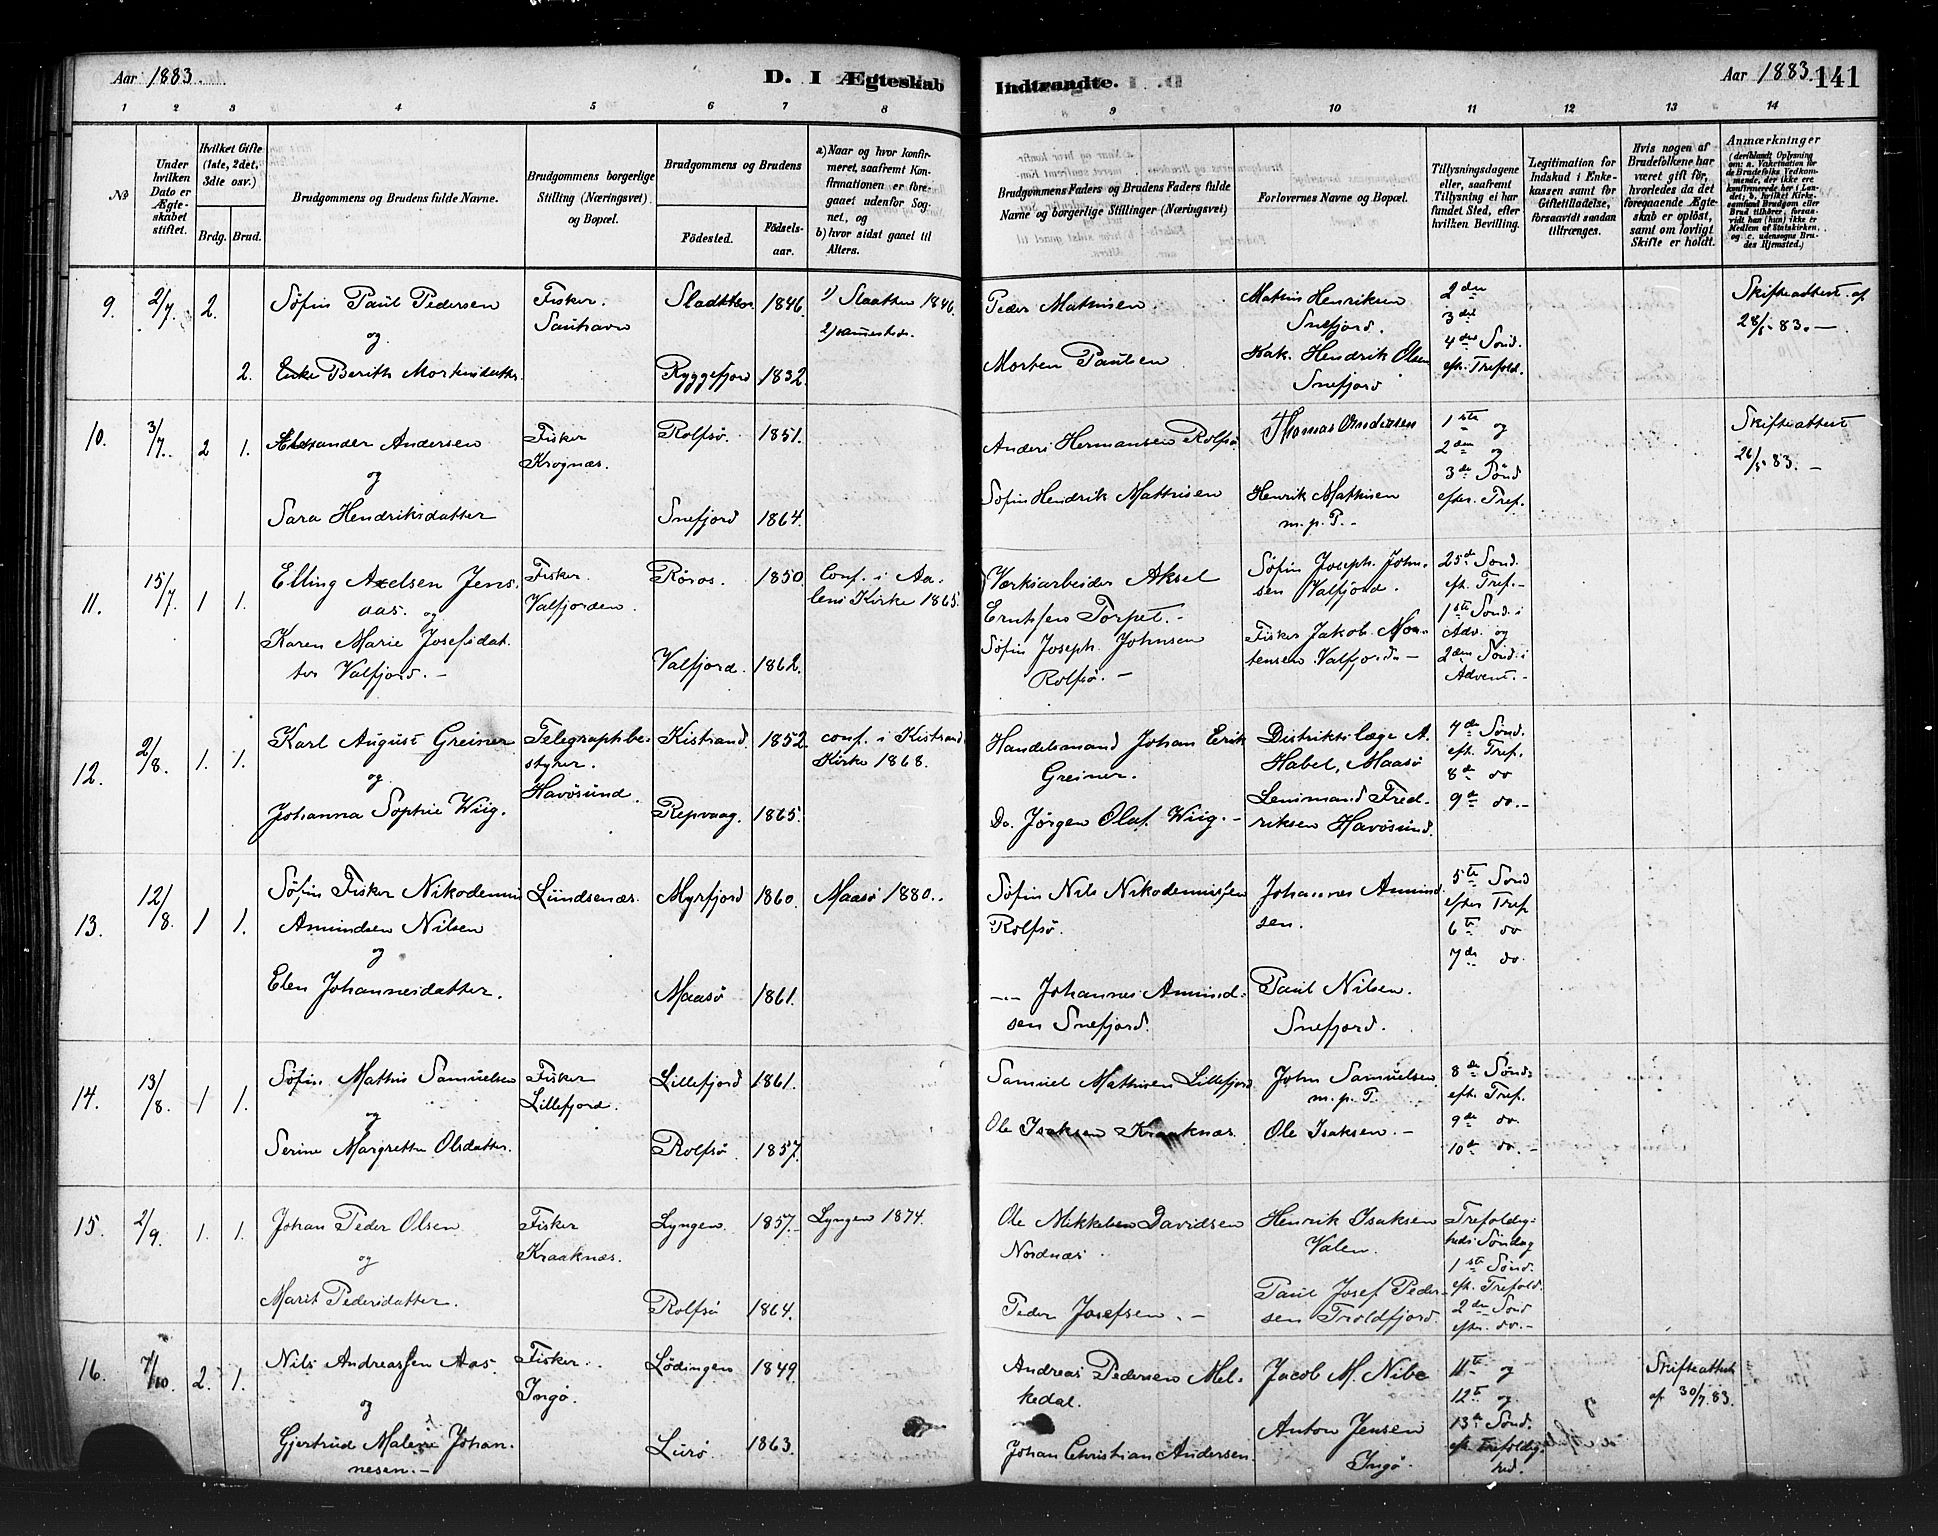 Aar 1883.
D. I Ægteskab
Indtraadte.
Aar 1883.
141
1 2 3 4 5 6 7 8
9 10 11 12 13 14
No
Under hvilken Dato er Ægteskabet stiftet.
Hvilket Gifte (1ste, 2det, 3die osv.)
Brdg. Brud.
Brudgommens og Brudens fulde Navne.
Brudgommens borgerlige Stilling (Næringsvei) og Bopæl.
Brudgommens og Brudens
Födested.
Födsels-aar.
a) Naar og hvor konfirmeret, saafremt Konfirmationen er foregaaet udenfor Sognet, og
b) hvor sidst gaaet til Alters.
Brudgommens Faders og Brudens Faders fulde Navne og borgerlige Stillinger (Næringsvei)
Forlovernes Navne og Bopæl.
Tillysningsdagene eller, saafremt Tillysning ei har fundet Sted, efter hvilken Bevilling.
Legitimation for Indskud i Enkekassen samt for Giftetilladelse, forsaavidt saadan tiltrænges.
Hvis nogen af Brudefolkene har været gift för, hvorledes da det foregaaende Ægteskab er oplöst, samt om lovligt Skifte er holdt.
Anmærkninger
9. 2/7. 2.
Söfin Paul Pedersen
og
2. Enke Berith Mortensdatter
Fisker.
Sauhavn
Sladtten 1846
Ryggefjord 1832
1) Slaatten 1846.
2) sammesteds.
Peder Mathisen
Morten Paulsen
Mathis Henriksen
Snefjord.
Kat. Hendrik Olsen
Snefjord
2den
3die
4de Sond.
eft. Trefold.
Skifteattest af
28/5 83. —
10. 3/7. 2 1.
Aleksander Andersen
og
Sara Hendriksdatter
Fisker
Krognæs.
Rolfsö. 1851.
Snefjord 1864.
Anders Hermansen Rolfsö
Söfin Hendrik Mathisen
Thomas Andersen
Henrik Mathisen
m. p. P. -
1ste og
2den og
3de Sönd
efter. Tref.
Skifteattest
26/5 83. —
11. 15/7 1 1.
Elling Axelsen Jens
aas. og
Karen Marie Josefsdat-
ter Valfjord. -
Fisker.
Valfjorden.
Röros. 1850.
Valfjord. 1862.
Conf. i Aa-
lens Kirke 1865.
Værksarbeider Aksel
Erntsen Torpet. -
Söfin Joseph Johnsen
Rolfsö. -
Söfin Joseph John-
sen Valfjord.
Fisker Jakob Mor-
tensen Valfjord. -
25de Sond.
eft. Tref. -
1ste Sond. i
Adv. og
2den Sönd. i
Advent. -
12. 2/8. 1. 1.
Karl August Greiner
og
Johanna Sophie Wiig.
Telegraphbe-
styrer.
Havösund.
Kistrand. 1852.
Repvaag. 1865.
conf. i Kistrand
Kirke 1868.
Handelsmand Johan Erik
Greiner.
Do. Jörgen Olaf Wiig. -
Distriktslæge A.
Habel, Maasö
Lensmand Fred-
riksen Havösund.
7de Sönd.
eft. Tref.
8de do
9de do. -
13. 12/8. 1 1.
Söfin Fisker Nikodemus
Amundsen Nilsen
og
Elen Johannesdatter.
Lundsenæs.
Myrfjord 1860.
Maasö 1861.
Maasö 1880.
Söfin Nils Nikodemussen
Rolfsö.
— Johannes Amund-
sen Snefjord.
Johannes Amund
sen.
Paul Nilsen.
Snefjord.
5te Sond
efter Tref
6te do
7de do.
14. 13/8. 1 1.
Söfin. Mathis Samuelsen
og
Serine Margrethe Olsdatter.
Fisker
Lillefjord.
Lillefjord 1861.
Rolfsö. 1857.
Samuel Mathisen Lillefjord
Ole Isaksen Kraaknæs.
John Samuelsen
m. p. P.
Ole Isaksen. -
8de Sönd.
eft. Tref.
9de do.
10de do. -
15. 2/9. 1. 1.
Johan Peder Olsen
og
Marit Pedersdatter.
Fisker
Kraaknæs.
Lyngen. 1857.
Rolfsö 1864.
Lyngen 1874.
Ole Mikkelsen Davidsen
Nordnæs.
Peder Josefsen. -
Henrik Isaksen
Valen.
Paul Josef Peder-
sen Troldfjord.
Trefoldig-
heds Söndag
1ste Sönd.
eft. Trefold.
2den Sond
efter. do. -
16. 7/10. 2. 1.
Nils Andreassen Aas
og
Gjertrud Malene Johan-
nesen. -
Fisker.
Ingö.
Lödingen 1849
Lurö 1863.
Andreas Pedersen Mel-
kedal.
Johan Christian Andersen.
Jacob M. Nibe
Anton Jensen
Ingö.
11te og
12te og
13de Sond.
eft. Trefoldig-
hed.
Skifteattest
af 30/7 83.